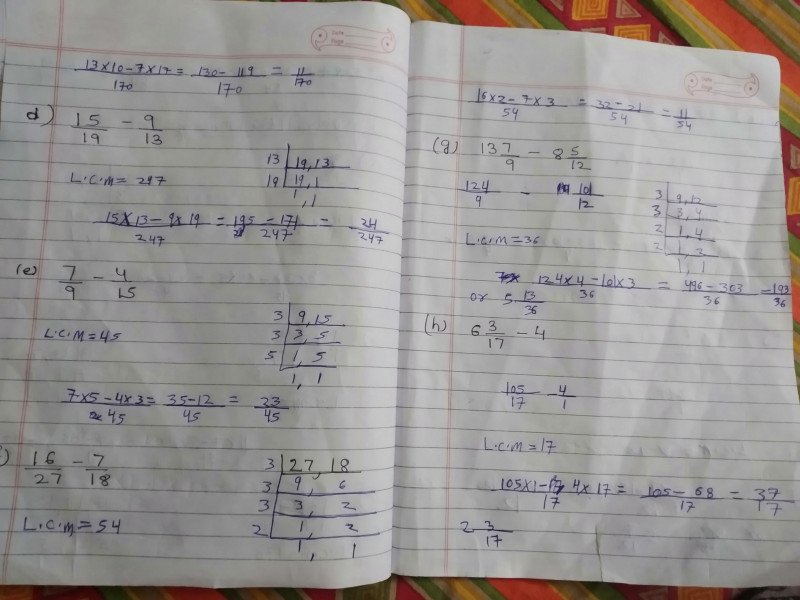 Date
Page
13×10-7×17/170 = 130-119/170 = 11/170
d) 15/19 - 9/13
13 | 19, 13
L.C.M = 247
19 | 19, 1
1, 1
15×13-9×19/247 = 195-171/247 = 24/247
(e) 7/9 - 4/15
3 | 9, 15
L.C.M = 45
3 | 3, 5
5 | 1, 5
1, 1
7×5-4×3/45 = 35-12/45 = 23/45
16/27 - 7/18
3 | 27, 18
3 | 9, 6
3 | 3, 2
L.C.M = 54
2 | 1, 2
1, 1
16×2-7×3/54 = 32-21/54 = 11/54
(g) 13 7/9 - 8 5/12
124/9 - 101/12
3 | 9, 12
3 | 3, 4
2 | 1, 4
L.C.M = 36
2 | 1, 2
1, 1
124×4-101×3/36 = 496-303/36 = 193/36
or 5 13/36
(h) 6 3/17 - 4
105/17 - 4/1
L.C.M = 17
105×1-4×17/17 = 105-68/17 = 37/17
2 3/17